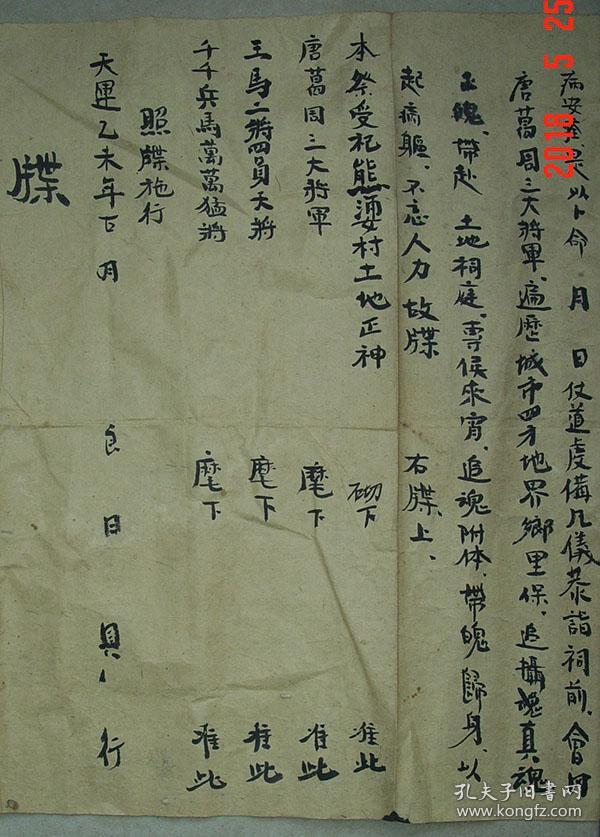 病安痊、是以卜命 月 日仗道虔備凡儀恭詣祠前、會同
唐葛周三大將軍、遍歷城市四方地界鄉里保、追攝魂真魂
正魄、帶赴 土地祠庭、專侯來宵、追魂附体、帶魄歸身、以
起病軀、不忘人力 故牒 右牒上、
本祭受祀熊婆村土地正神 砌下 准此
唐葛周三大將軍 麾下 准此
王馬二將四員大將 麾下 准此
千千兵馬萬萬猛將 麾下 准此
照牒施行
天運乙未年 月 良日 具 行
牒
2018 5 25
孔夫子旧書网
www.kongfz.com